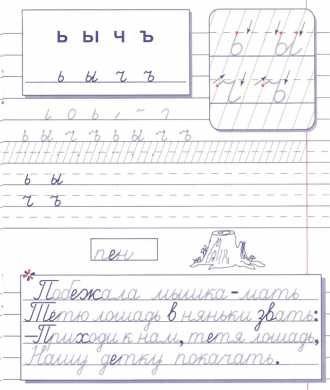 ь ы ч ъ
ь ы ч ъ
ь ы
ч ъ
ь ы ч ъ ь ы ч ъ
ь ы
ч ъ
пен
Побежала мышка-мать
Тетю лошадь в няньки звать:
-Приходи к нам, тетя лошадь,
Нашу детку покачать.